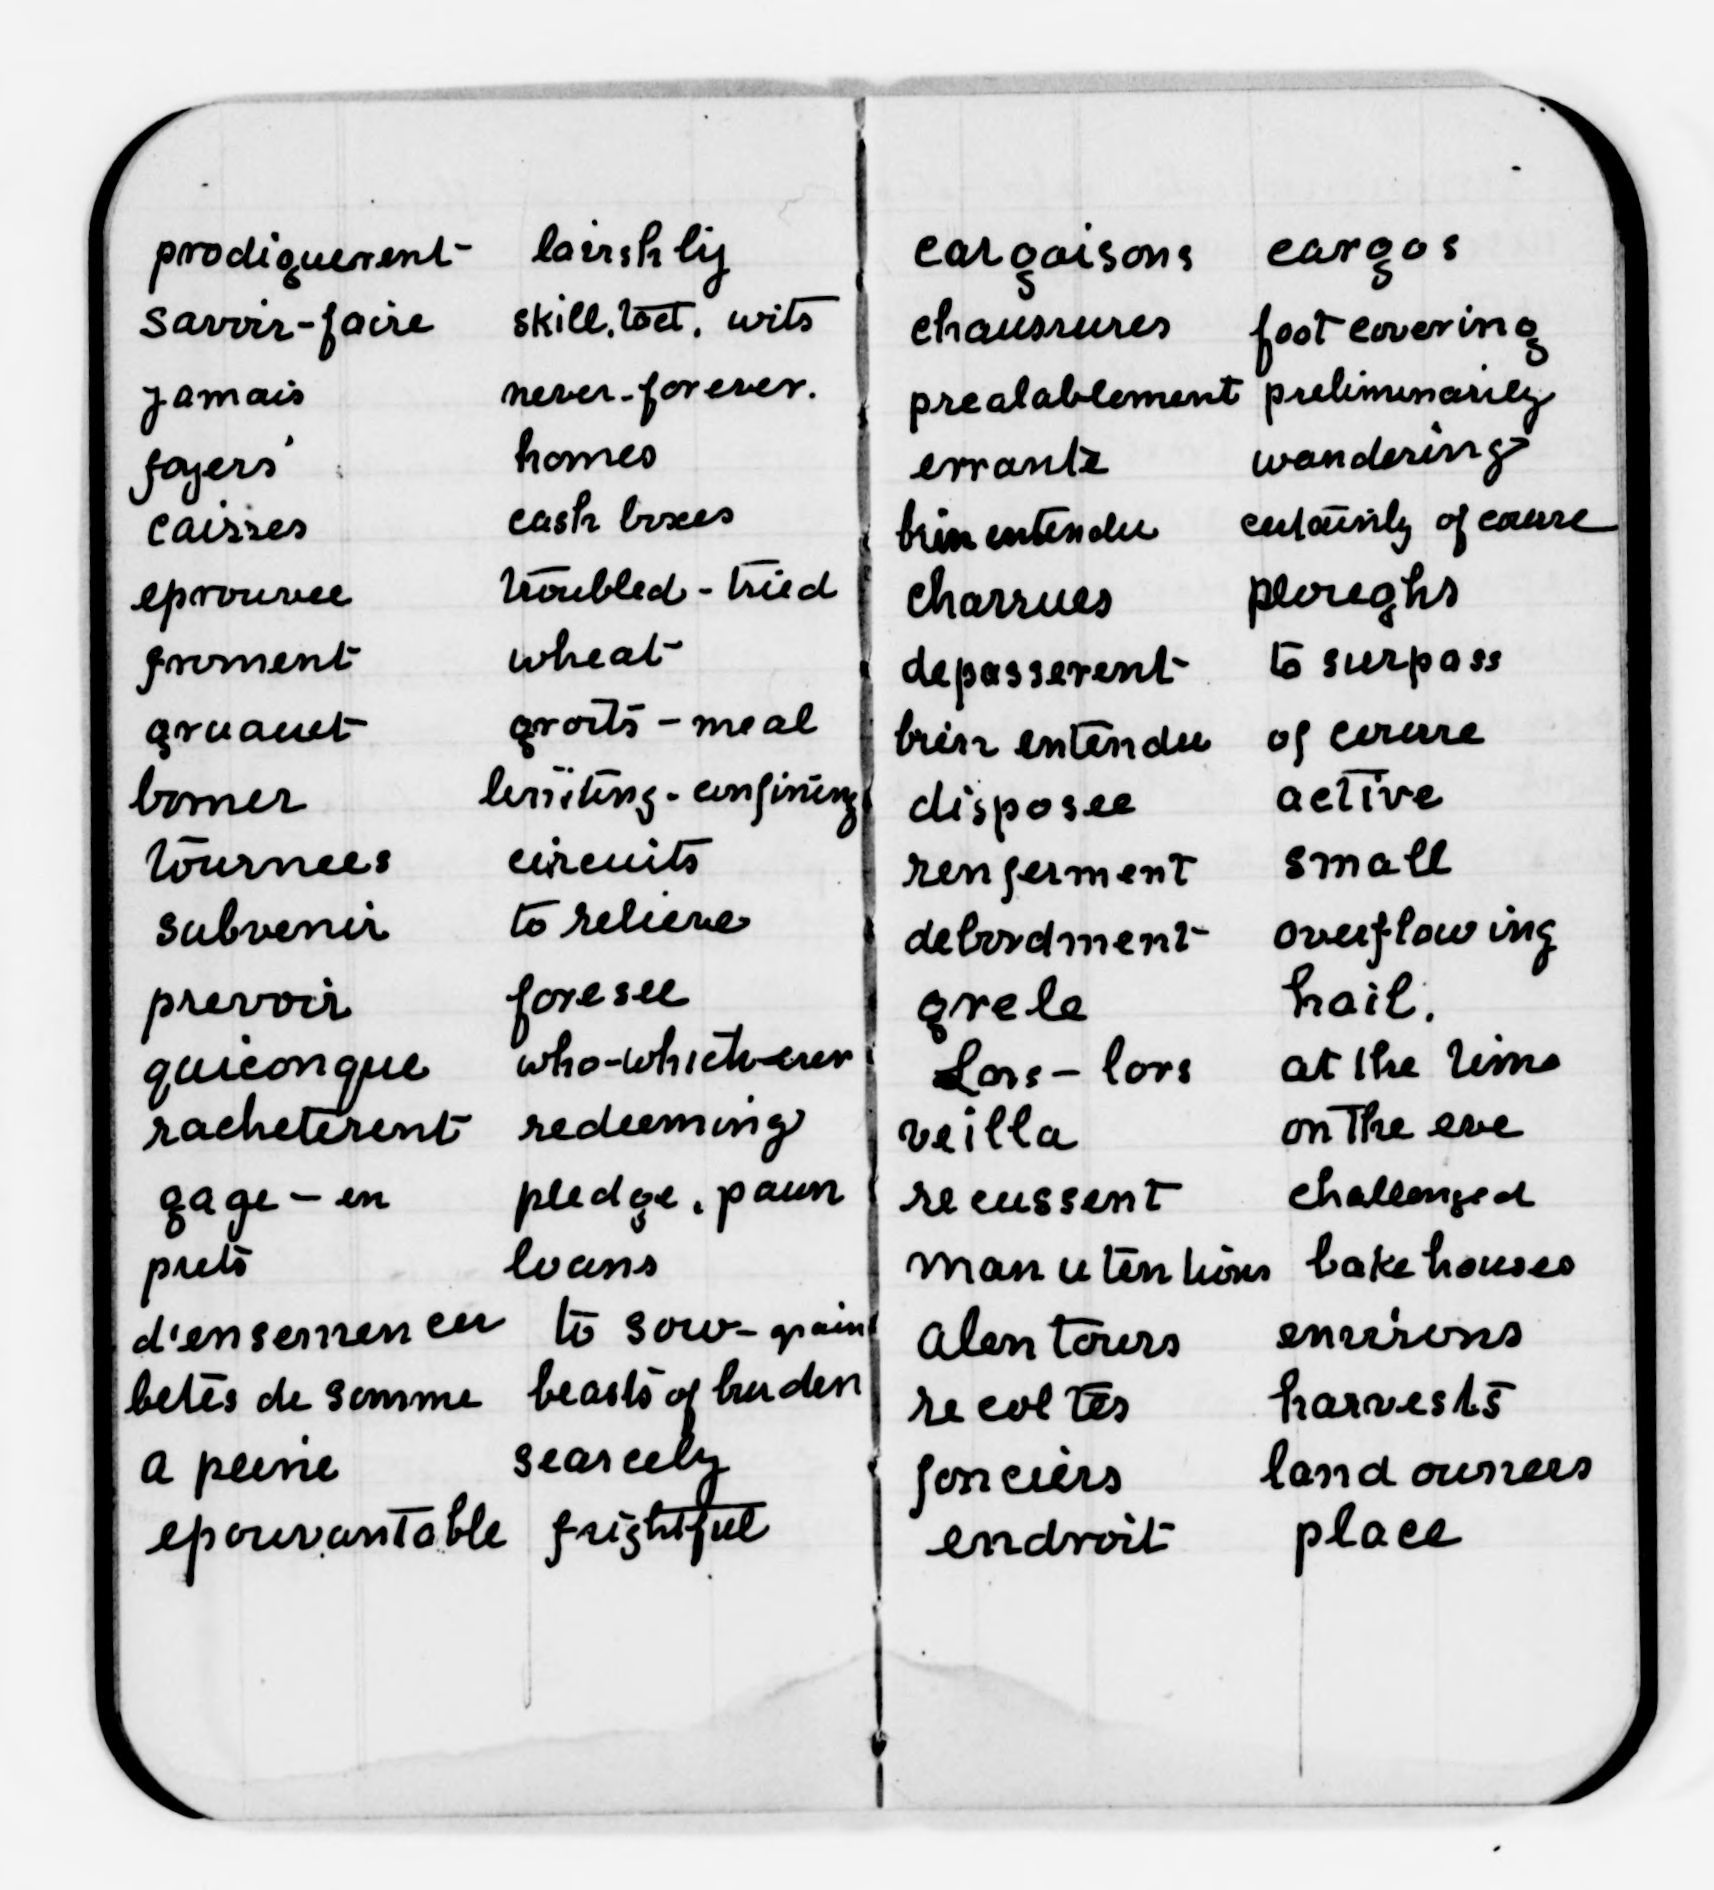 prodiguerent lavishly
savoir-faire skill, tact, wits
jamais never-forever.
foyers homes
caisses cash boxes
eprouvee troubled - tried
froment wheat
gruauet groits - meal
borner limiting - confining
tournees circuits
subvenir to relieve
prevoir foresee
quiconque who-which-ever
racheterent redeeming
gage - en pledge, pawn
prets loans
d'ensemencer to sow - grain
betes de somme beasts of burden
a peine scarcely
epouvantable frightful
cargaisons cargos
chaussures foot covering
prealablement preliminarily
errante wandering
bien entendu certainly of course
charrues ploughs
depasserent to surpass
bien entendu of course
disposee active
renferment small
debordment overflowing
grele hail.
Lors - lors at the time
veilla on the eve
recussent challenged
manutentions bake houses
alentours environs
recoltes harvests
fonciers land owners
endroit place